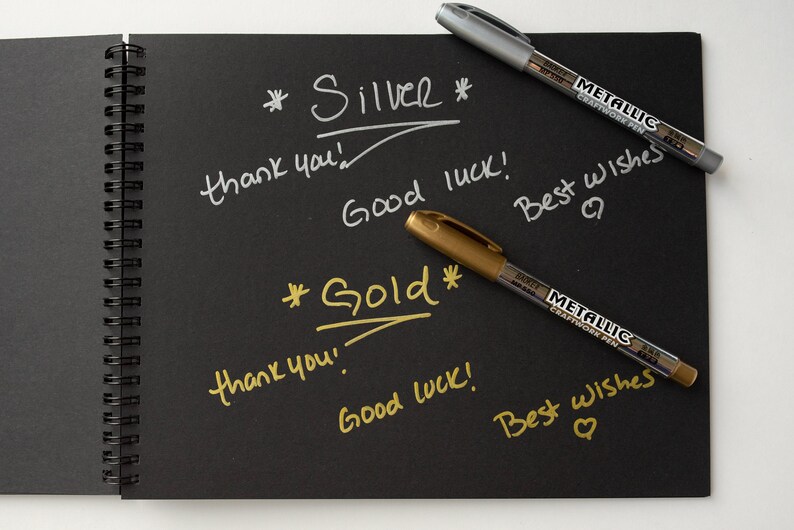 * Silver *
thank you!
Good luck!
Best wishes
METALLIC
CRAFTWORK PEN
* Gold *
thank you!
Good luck!
Best wishes
METALLIC
CRAFTWORK PEN